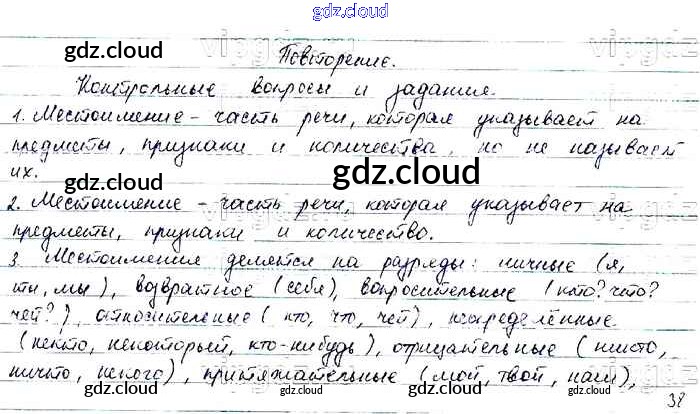 gdz.cloud
gdz.cloud vipgdz gdz.cloud
Повторение.
Контрольные вопросы и задания.
1. Местоимение - часть речи, которая указывает на
предметы, признаки и количества, но не называет
их.
gdz.cloud
gdz.cloud
2. Местоимение - часть речи, которая указывает на
предметы, признаки и количество.
3. Местоимения делятся на разряды: личные (я,
ты, мы), возвратное (себя), вопросительные (кто? что?
чей?), относительные (кто, что, чей), неопределённые
(некто, некоторый, кто-нибудь), отрицательные (никто,
ничто, некого), притяжательные (мой, твой, наш),
gdz.cloud gdz.cloud
38
gdz.cloud